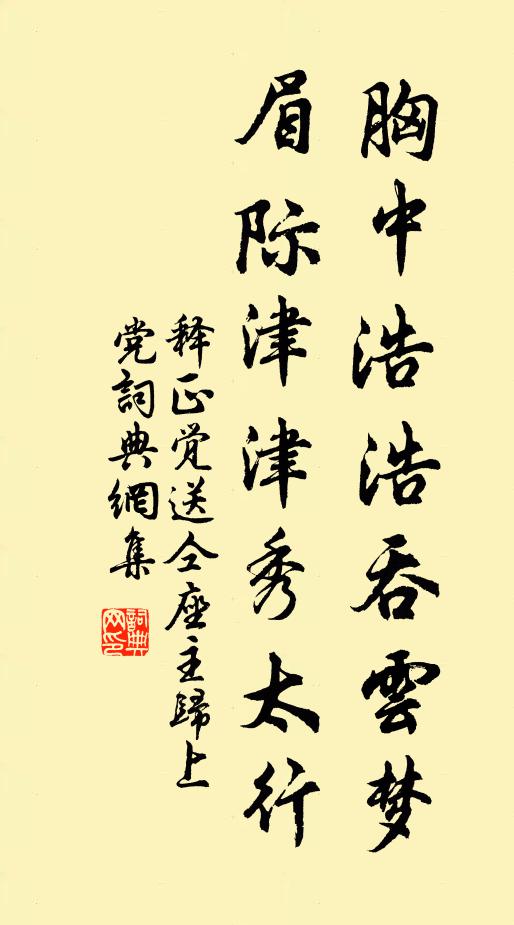 胸中浩浩吞雲梦
眉际津津秀太行
释正觉送仝座主歸上
党詞典網集
詞典
网印